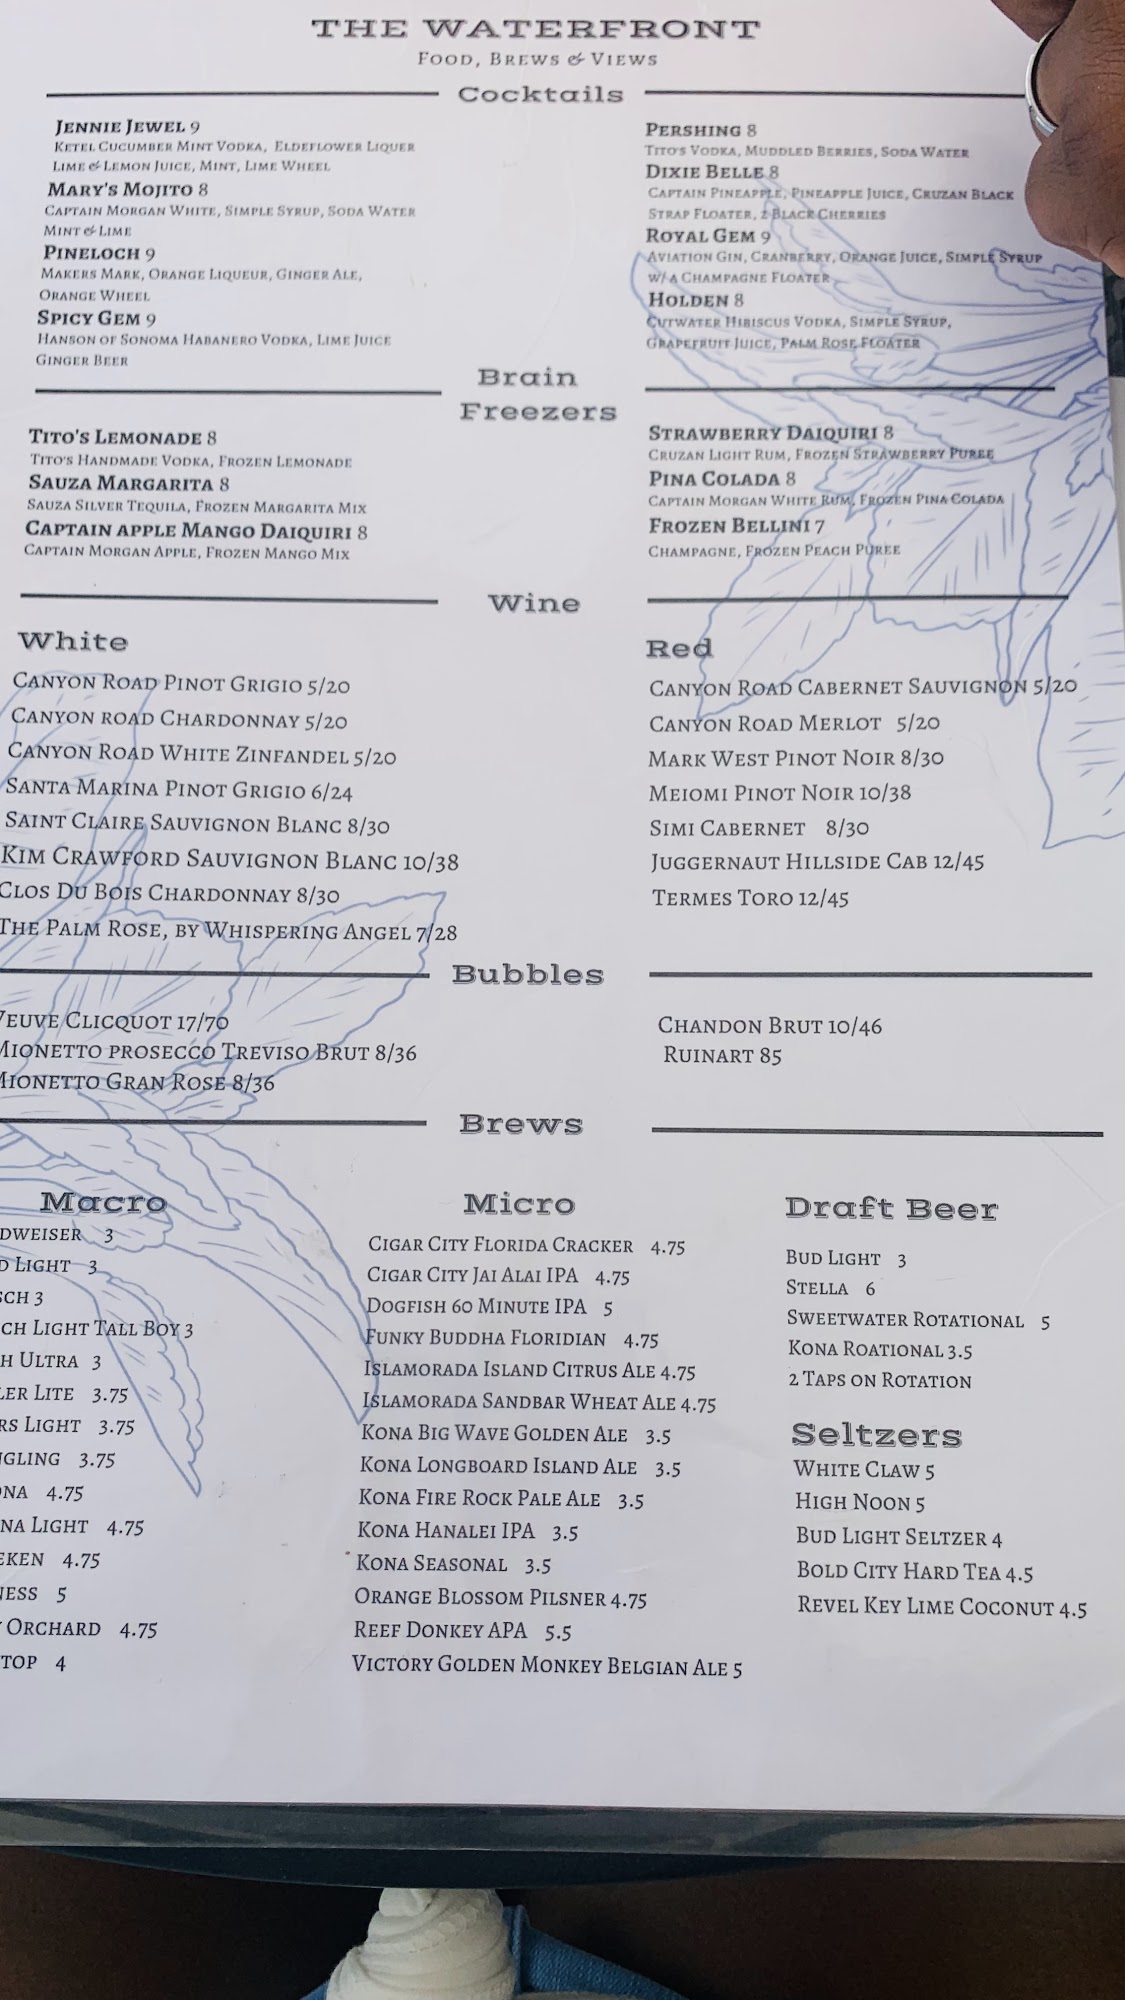 THE WATERFRONT
FOOD, BREWS & VIEWS
Cocktails
JENNIE JEWEL 9
KETEL CUCUMBER MINT VODKA, ELDEFLOWER LIQUER
LIME & LEMON JUICE, MINT, LIME WHEEL
MARY'S MOJITO 8
CAPTAIN MORGAN WHITE, SIMPLE SYRUP, SODA WATER
MINT & LIME
PINELOCH 9
MAKERS MARK, ORANGE LIQUEUR, GINGER ALE,
ORANGE WHEEL
SPICY GEM 9
HANSON OF SONOMA HABANERO VODKA, LIME JUICE
GINGER BEER
PERSHING 8
TITO'S VODKA, MUDDLED BERRIES, SODA WATER
DIXIE BELLE 8
CAPTAIN PINEAPPLE, PINEAPPLE JUICE, CRUZAN BLACK
STRAP FLOATER, 2 BLACK CHERRIES
ROYAL GEM 9
AVIATION GIN, CRANBERRY, ORANGE JUICE, SIMPLE SYRUP
W/ A CHAMPAGNE FLOATER
HOLDEN 8
CUTWATER HIBISCUS VODKA, SIMPLE SYRUP,
GRAPEFRUIT JUICE, PALM ROSE FLOATER
Brain
Freezers
TITO'S LEMONADE 8
TITO'S HANDMADE VODKA, FROZEN LEMONADE
SAUZA MARGARITA 8
SAUZA SILVER TEQUILA, FROZEN MARGARITA MIX
CAPTAIN APPLE MANGO DAIQUIRI 8
CAPTAIN MORGAN APPLE, FROZEN MANGO MIX
STRAWBERRY DAIQUIRI 8
CRUZAN LIGHT RUM, FROZEN STRAWBERRY PUREE
PINA COLADA 8
CAPTAIN MORGAN WHITE RUM, FROZEN PINA COLADA
FROZEN BELLINI 7
CHAMPAGNE, FROZEN PEACH PUREE
Wine
White
CANYON ROAD PINOT GRIGIO 5/20
CANYON ROAD CHARDONNAY 5/20
CANYON ROAD WHITE ZINFANDEL 5/20
SANTA MARINA PINOT GRIGIO 6/24
SAINT CLAIRE SAUVIGNON BLANC 8/30
KIM CRAWFORD SAUVIGNON BLANC 10/38
CLOS DU BOIS CHARDONNAY 8/30
THE PALM ROSE, BY WHISPERING ANGEL 7/28
Red
CANYON ROAD CABERNET SAUVIGNON 5/20
CANYON ROAD MERLOT 5/20
MARK WEST PINOT NOIR 8/30
MEIOMI PINOT NOIR 10/38
SIMI CABERNET 8/30
JUGGERNAUT HILLSIDE CAB 12/45
TERMES TORO 12/45
Bubbles
VEUVE CLICQUOT 17/70
MIONETTO PROSECCO TREVISO BRUT 8/36
MIONETTO GRAN ROSE 8/36
CHANDON BRUT 10/46
RUINART 85
Brews
Macro
DWEISER 3
D LIGHT 3
SCH 3
CH LIGHT TALL BOY 3
H ULTRA 3
LER LITE 3.75
RS LIGHT 3.75
NGLING 3.75
ONA 4.75
NA LIGHT 4.75
EKEN 4.75
NESS 5
Y ORCHARD 4.75
TOP 4
Micro
CIGAR CITY FLORIDA CRACKER 4.75
CIGAR CITY JAI ALAI IPA 4.75
DOGFISH 60 MINUTE IPA 5
FUNKY BUDDHA FLORIDIAN 4.75
ISLAMORADA ISLAND CITRUS ALE 4.75
ISLAMORADA SANDBAR WHEAT ALE 4.75
KONA BIG WAVE GOLDEN ALE 3.5
KONA LONGBOARD ISLAND ALE 3.5
KONA FIRE ROCK PALE ALE 3.5
KONA HANALEI IPA 3.5
KONA SEASONAL 3.5
ORANGE BLOSSOM PILSNER 4.75
REEF DONKEY APA 5.5
VICTORY GOLDEN MONKEY BELGIAN ALE 5
Draft Beer
BUD LIGHT 3
STELLA 6
SWEETWATER ROTATIONAL 5
KONA ROATIONAL 3.5
2 TAPS ON ROTATION
Seltzers
WHITE CLAW 5
HIGH NOON 5
BUD LIGHT SELTZER 4
BOLD CITY HARD TEA 4.5
REVEL KEY LIME COCONUT 4.5